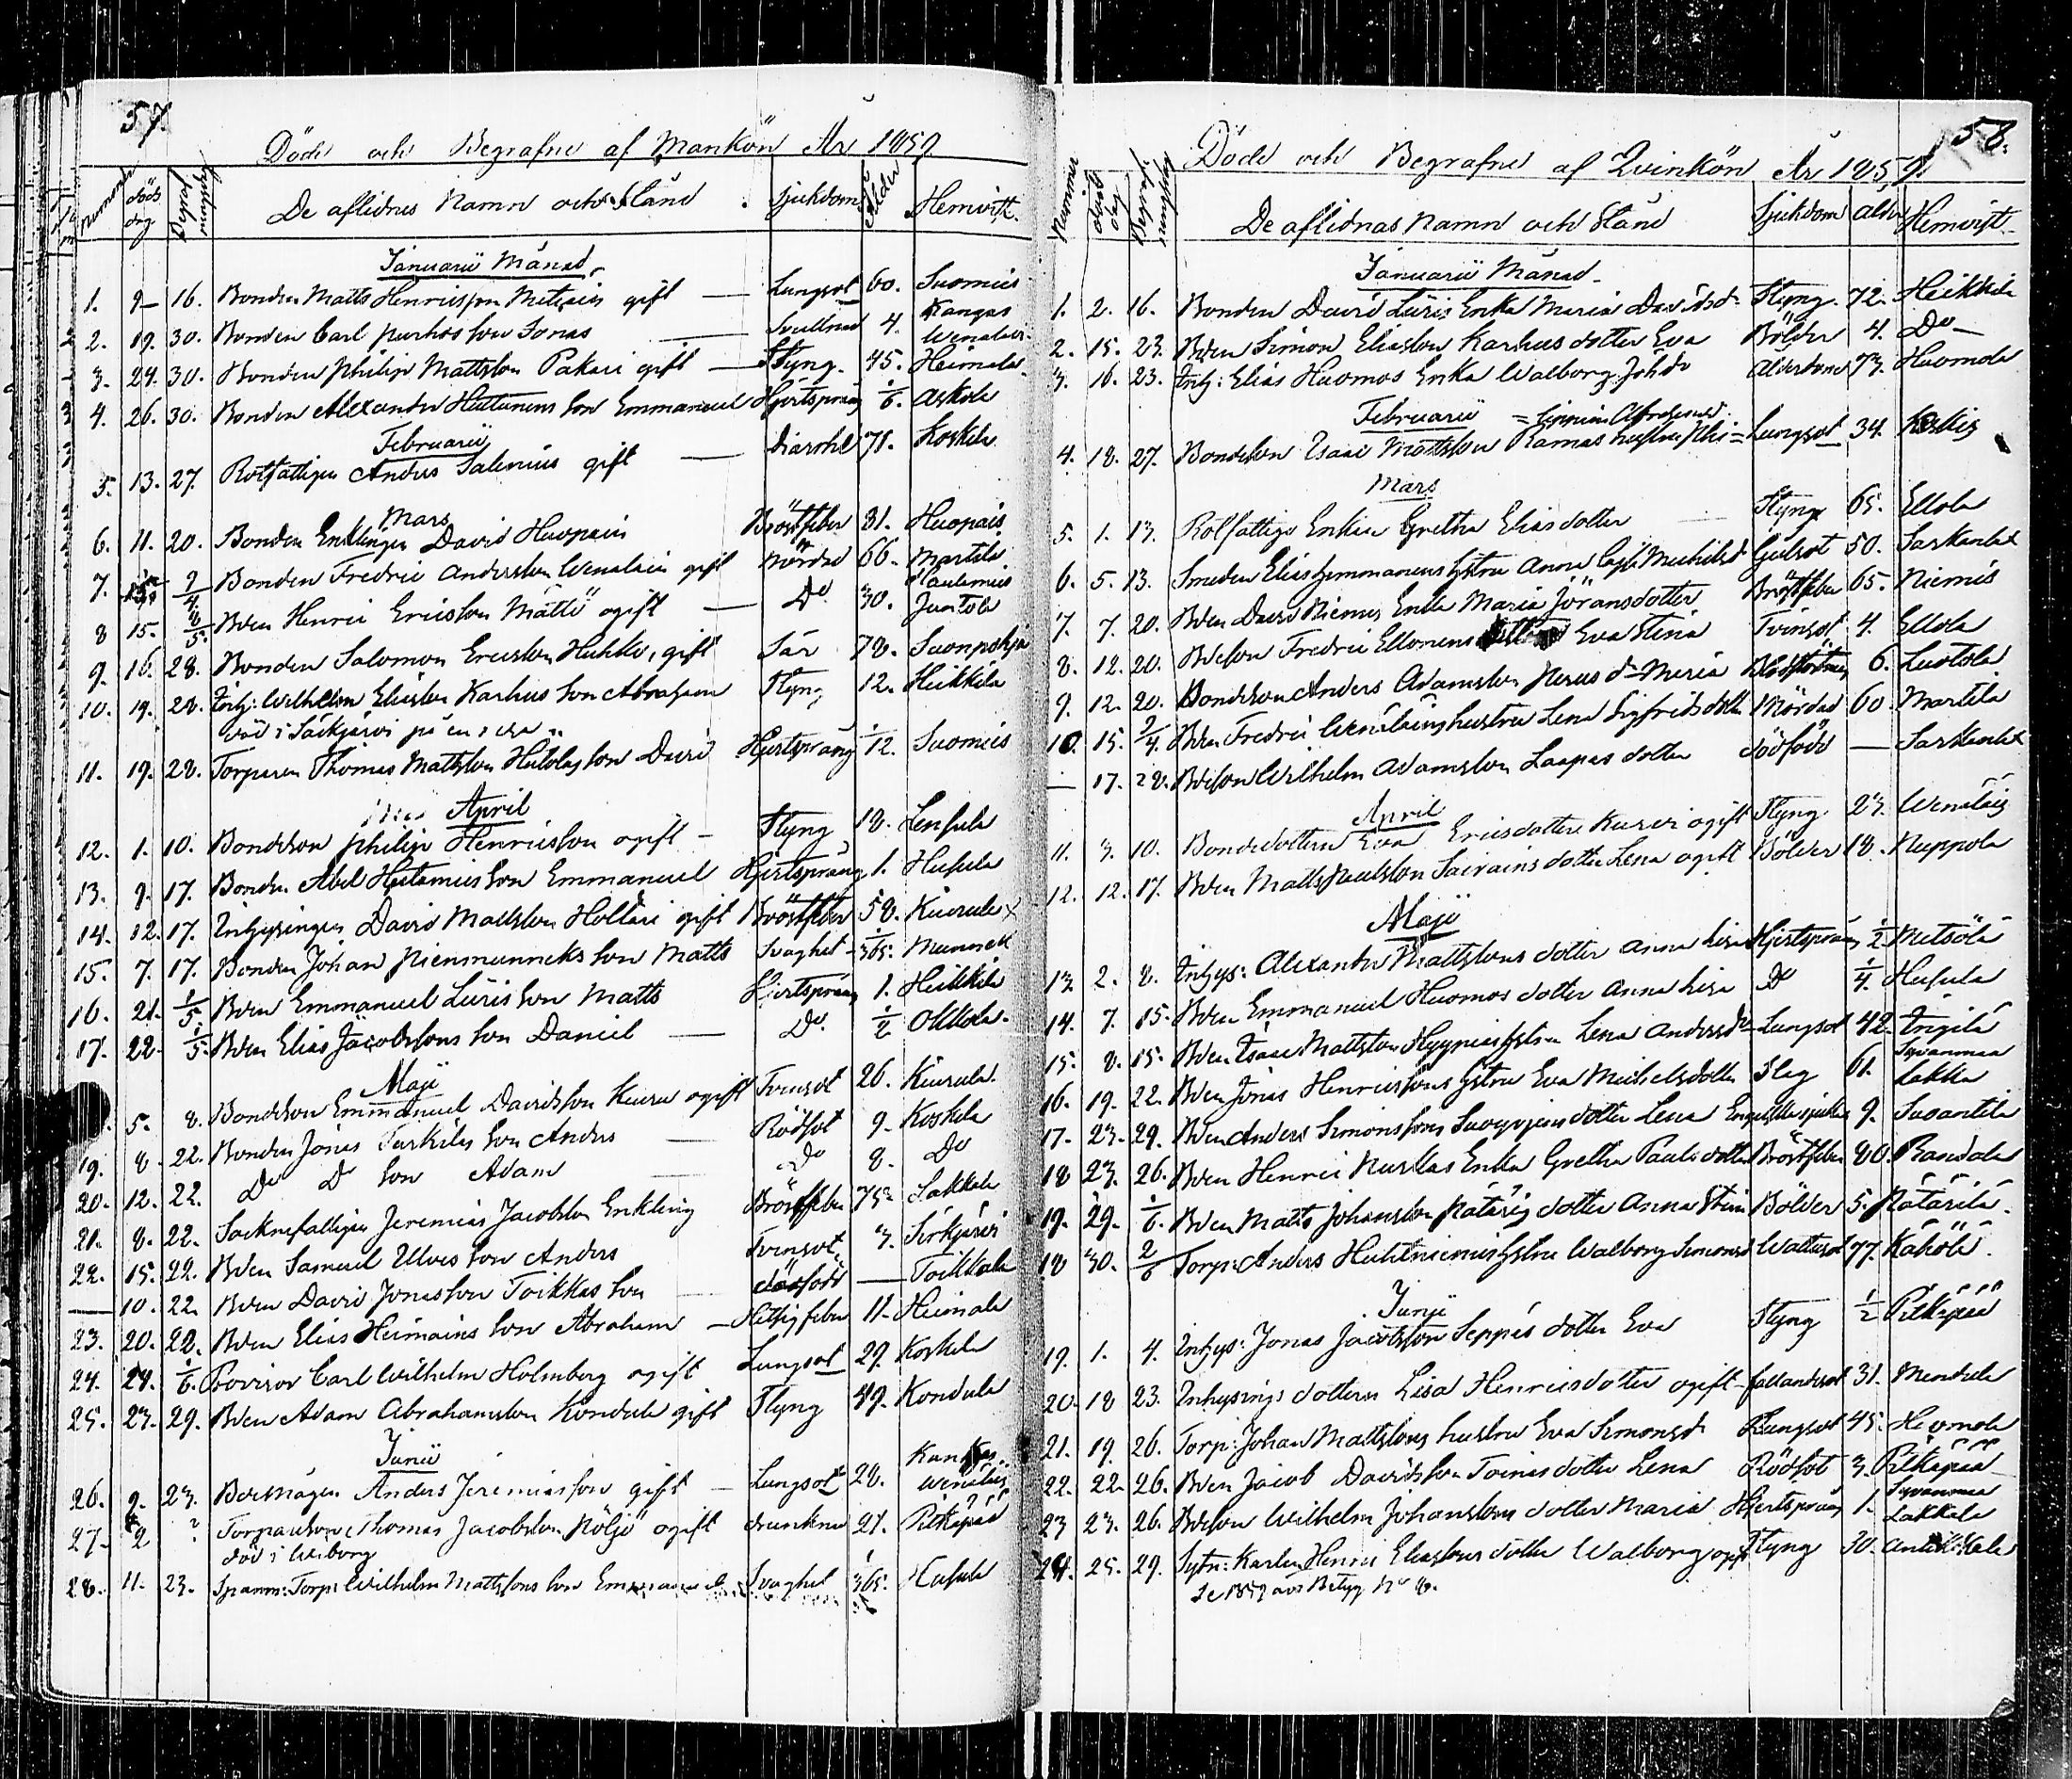 57.
Döde och Begrafne af Mankön År 1859
Nummer döds dag Begrafningsdag De aflidnes Namn och Stånd Sjukdom Ålder Hemvist
Januarii Månad
1. 9 16. Bonden Matts Henricsson gift Lungsot 60. Suomies
2. 19. 30. Bonden Carl Purhos son Jonas Svullnad 4. Kangas
3. 24. 30. Bonden Philip Mattsson Pakari gift Styng 45. Heimala
4. 26. 30. Bonden Alexander Huttunens son Emmanuel Hjertsprång 1/6. Askola
Februarii
5. 13. 27. Rotfattigen Anders Salenius gift diarrhé 71. Koskela
Mars
6. 11. 20. Bonden Enklingen David Huopain Bröstfeber 31. Huopais
7. 15. 2/4 Bonden Fredric Andersson Wenäläin gift Mördad 66. Martila
8 15. 8/5. Bden Henric Ericsson Mättö ogift Do 30. Juntola
9. 16. 28. Bonden Salomon Ericsson Huhko, gift Sår 78. Suonpohja
10. 19. 28. Inhj: Wilhelm Eliasson Karhus son Abraham Styng 12. Heikkilä
död i Säkjärvi på en resa
11. 19. 28. Torparen Thomas Mattsson son David Hjertsprång 1/12. Suomies
April
12. 1. 10. Bondeson Philip Henricsson ogift Styng 18. Lensula
13. 9. 17. Bonden Abel Hietamies son Emmanuel Hjertsprång 1. Husula
14. 12. 17. Inhysingen David Mattsson Hollari gift Bröstfeber 58. Kiurula
15. 7. 17. Bonden Johan Nienmunneks son Matts Svaghet 1/365. Munnek
16. 21. 1/5 Bden Emmanuel Luris son Matts Hjertsprång 1. Heikkilä
17. 22 1/5. Bden Elias Jacobssons son Daniel Do 1/2 Ollola
Maji
5. 8. Bondeson Emmanuel Davidsson Kiuru ogift Tvinsot 26. Kiurula
19. 8. 22. Bonden Jonas Turkiläs son Anders Rödsot 9. Koskela
20. 12. 22. Do Do son Adam Do 8. Do
21. 8. 22. Socknefattigen Jeremias Jacobsson Enkling Bröstfeber 75 Lakkala
22. 15. 22. Bden Samuel Ulves son Anders Tvinsot 3. Sirkjärvi
— 10. 22. Bden David Jonasson Toikkas son dödfödd — Toikkala
23. 20. 22. Bden Elias Heimains son Abraham Hetsigfeber 11. Heimala
24. 24. 1/6. Provisor Carl Wilhelm Holmberg ogift Lungsot 29. Koskela
25. 23. 29. Bden Adam Abrahamsson Kondula gift Styng 49. Kondula
Junii
26. 9. 23. Anders Jeremiasson gift Lungsot 28. Wenäläis
27. 2 ? Torpareson Thomas Jacobsson Pöljö ogift drunknad 21. Pitkäpää
död i Wiborg
28. 11. 23. Torp: Wilhelm Mattssons son Emmanuel Svaghet 1/365. Husula
58.
Döde och Begrafne af Qvinkön År 1859.
Nummer döds dag Begrafningsdag De aflidnas Namn och Stånd Sjukdom Ålder Hemvist
Januarii Månad
1. 2. 16. Bonden David Luris Enka Maria Davidsd: Styng 72. Heikkilä
2. 15. 23. Bden Simon Eliasson Karhus dotter Eva Bölder 4. Do
3. 16. 23. Inhj: Elias Huomos Enka Walborg Johds Alderdom 73. Huomola
Februarii
4. 18. 27. Bondeson Isaac Mattsson Rämas hustru Lungsot 34.
Mars
5. 1. 13. Rotfattige Enkan Gretha Eliasdotter Styng 65. Ellola
6. 5. 13. Smeden Elias hustru Anna Michelsd Gulsot 50. Sarkalax
7. 7. 20. Bden David Niemis Enka Maria Jöransdotter Bröstfeber 65. Niemis
8. 12. 20. Bdeson Fredric Ellonens Eva Stina Tvinsot 4. Ellola
9. 12. 20. Bondeson Anders Adamsson dr Maria 6.
10. 15. 2/4. Bden Fredric Wenäläins hustru Lena Sigfridsdotter Mördad 60. Martila
— 17. 28. Bdeson Wilhelm Adamsson Laapas dotter dödfödd — Sarkalax
April
11. 3. 10. Bondedottren Eva Ericsdotter Kurvi ogift Styng 23. Wenäläis
12. 12. 17. Bden Matts Paulsson Sairains dotter Lena ogift Bölder 18. Nuppola
Maji
13. 2. 8. Inhys: Alexander Mattssons dotter Anna Lisa Hjertsprång 1/2 Metsola
14. 7. 15. Bden Emmanuel Huomos dotter Anna Lisa Do 1/4. Husula
15. 8. 15. Bden Isaac Mattsson Hyypiäs hstru Lena Andersdr Lungsot 42. Ingilä
16. 19. 22. Bden Jonas Henricssons hstru Eva Michelsdotter Slag 61. Lakka
17. 23. 29. Bden Anders Simonssons dotter Lena Engelska sjukan 9. Suoantila
18 23. 26. Bden Henric Nurkkas Enka Gretha Paulsdotter Bröstfeber 80. Randala
19. 29. 1/6. Bden Matts Johansson Pätäris dotter Anna Stina Bölder 5. Pätärilä
18 30. 2/6 Torp: Anders Huhtniemis hstru Walborg Simonsd Wattusot 77. Kähölä
Junii
19. 1. 4. Inhys: Jonas Jacobsson Seppäs dotter Eva Styng 1/2 Pitkäpää
20. 18 23. Inhysings dottern Lisa Henricsdotter ogift fallandesot 31. Mendula
21. 19. 26. Torp: Johan Mattssons hustru Eva Simonsd Lungsot 45. Huomola
22. 22. 26. Bden Jacob Davidsson Toinas dotter Lena Rödsot 3. Pitkäpää
23 23. 26. Bdeson Wilhelm Johanssons dotter Maria Hjertsprång 1. Lakkala
24. 25. 29. Sytn: Karlen Henric Eliassons dotter Walborg ogift Styng 30.